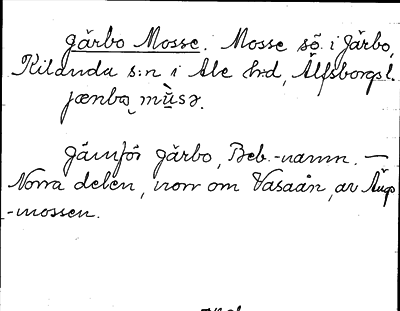 Gärbo Mosse. Mosse sö. i Gärbo,
Kilanda s:n i Ale h:d, Älfsborgs l.
jænbo mùsə.
Jämför Gärbo, Beb.-namn. —
Norra delen, norr om Vasaån, av Äng
-mossen.